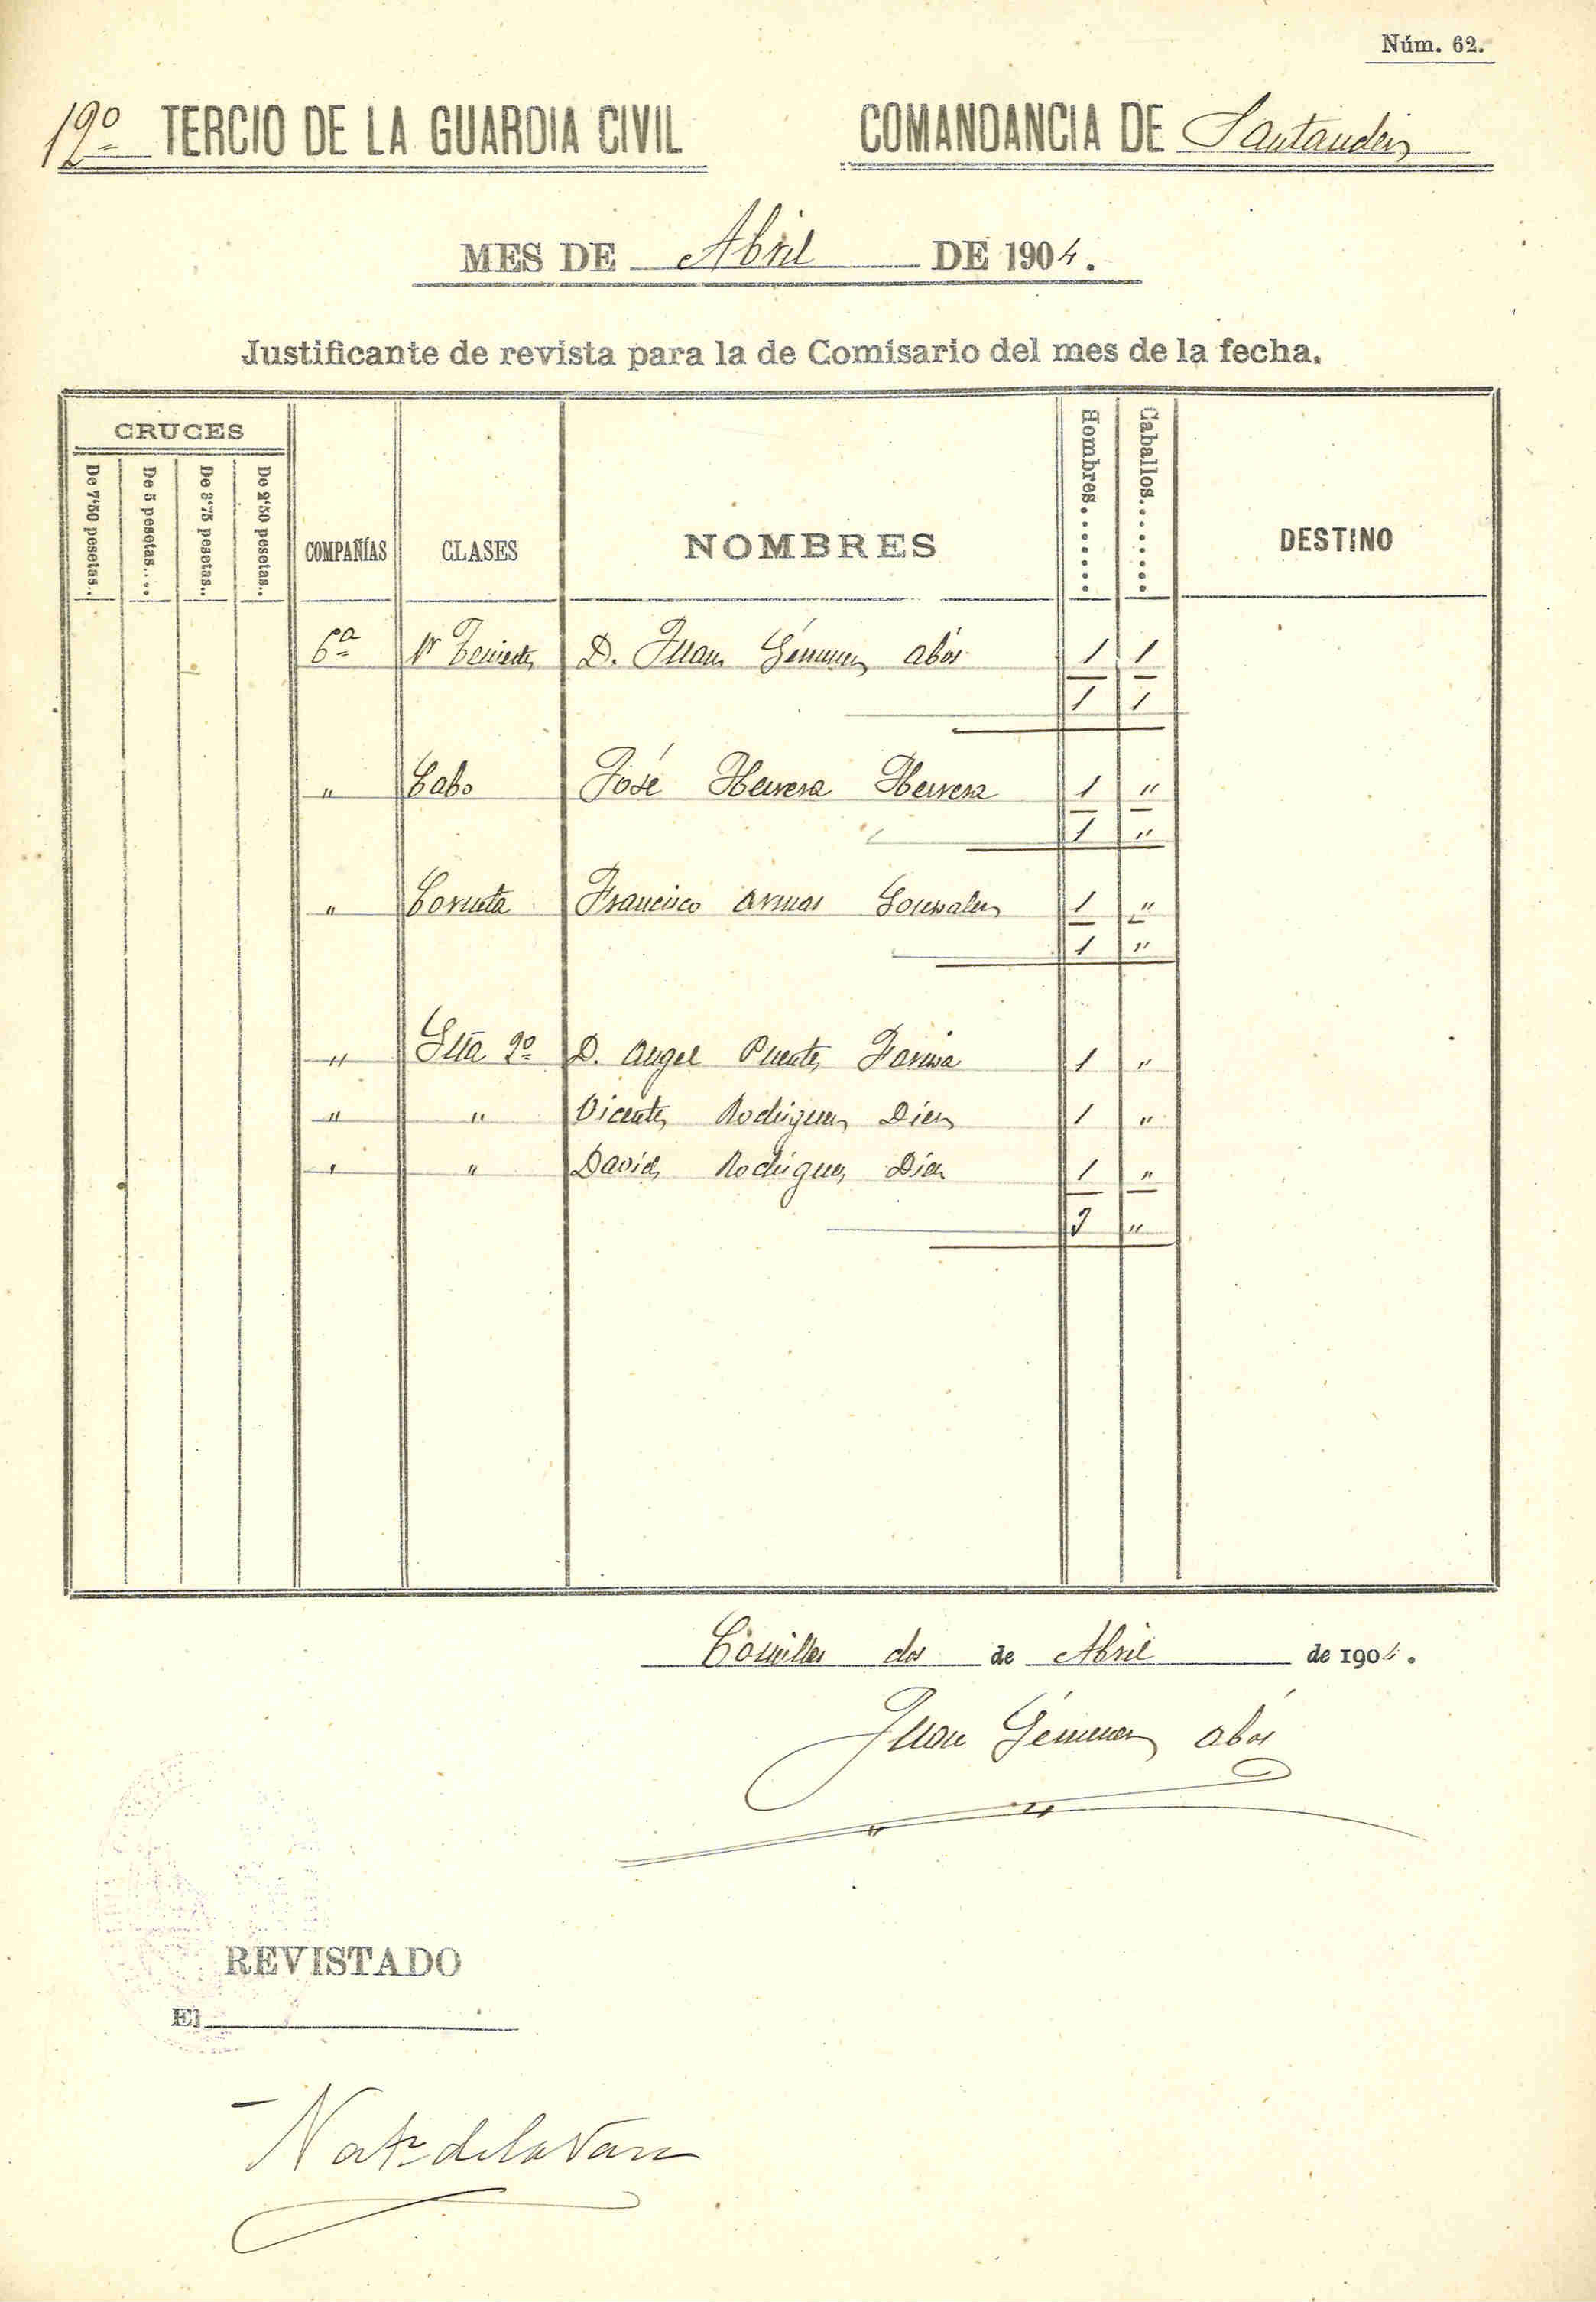 Núm. 62.
12º TERCIO DE LA GUARDIA CIVIL COMANDANCIA DE Santander
MES DE Abril DE 1904.
Justificante de revista para la de Comisario del mes de la fecha.
CRUCES
De 7'50 pesetas.. De 5 pesetas.... De 3'75 pesetas.. De 2'50 pesetas.. COMPAÑÍAS CLASES NOMBRES Hombres....... Caballos........ DESTINO
6ª 1r Teniente D. Juan Gémenez Abós 1 1
1 1
" Cabo José Herrera Herrera 1 "
1 "
" Corneta Francisco Armas Gonzalez 1 "
1 "
" Gua 2º D. Angel Puente Farina 1 "
" " Vicente Rodriguez Diez 1 "
" " David Rodriguez Diez 1 "
3 "
Comillas dos de Abril de 1904.
Juan Gémenez Abós
REVISTADO
El
de la Vara